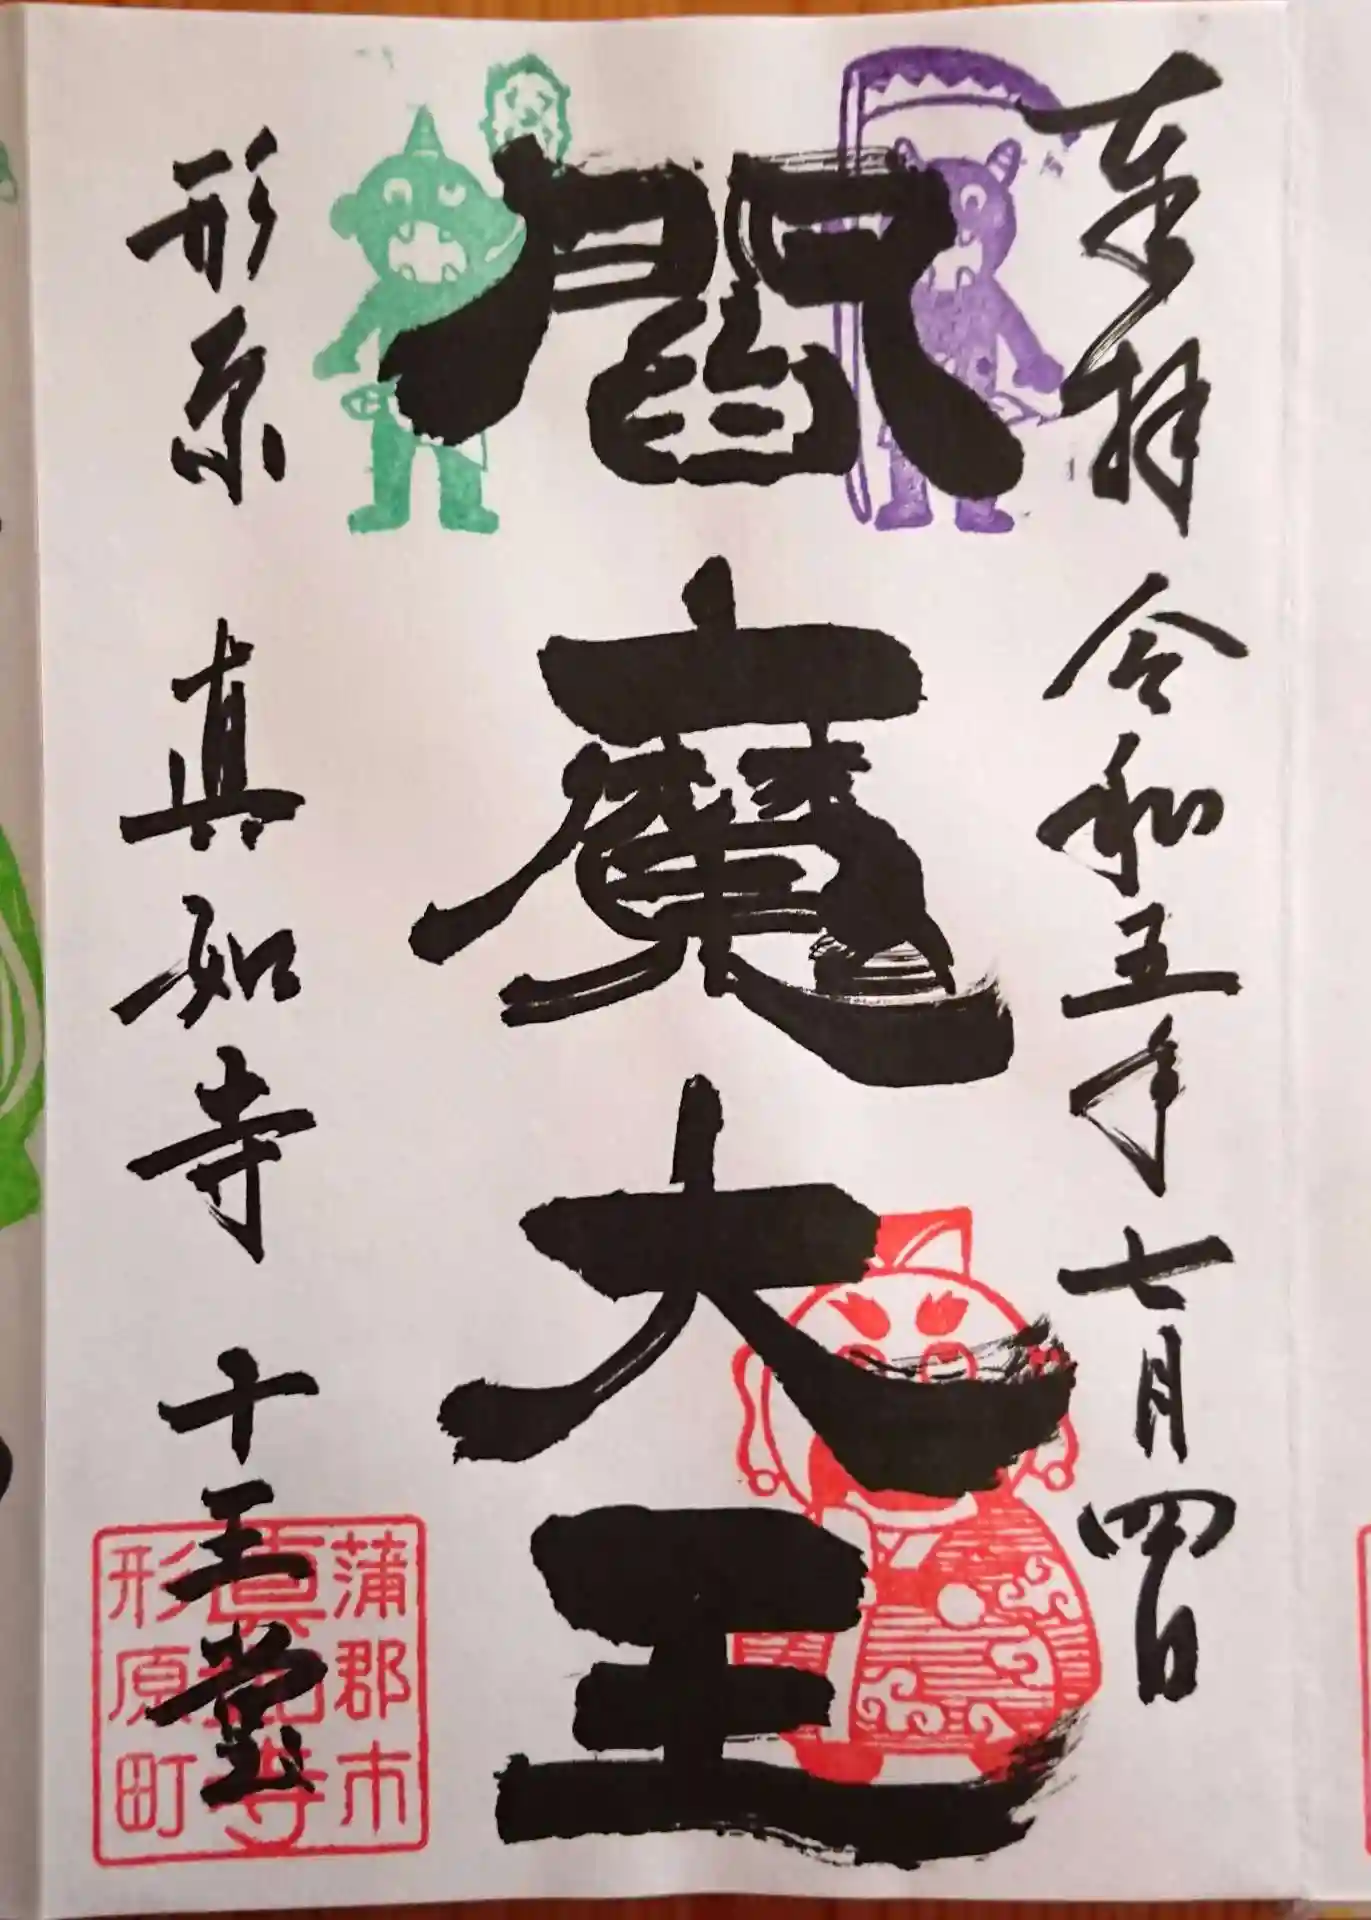 奉拝 令和五年七月四日
閻魔大王
形原 真如寺 十王堂
蒲郡市
真如寺
形原町